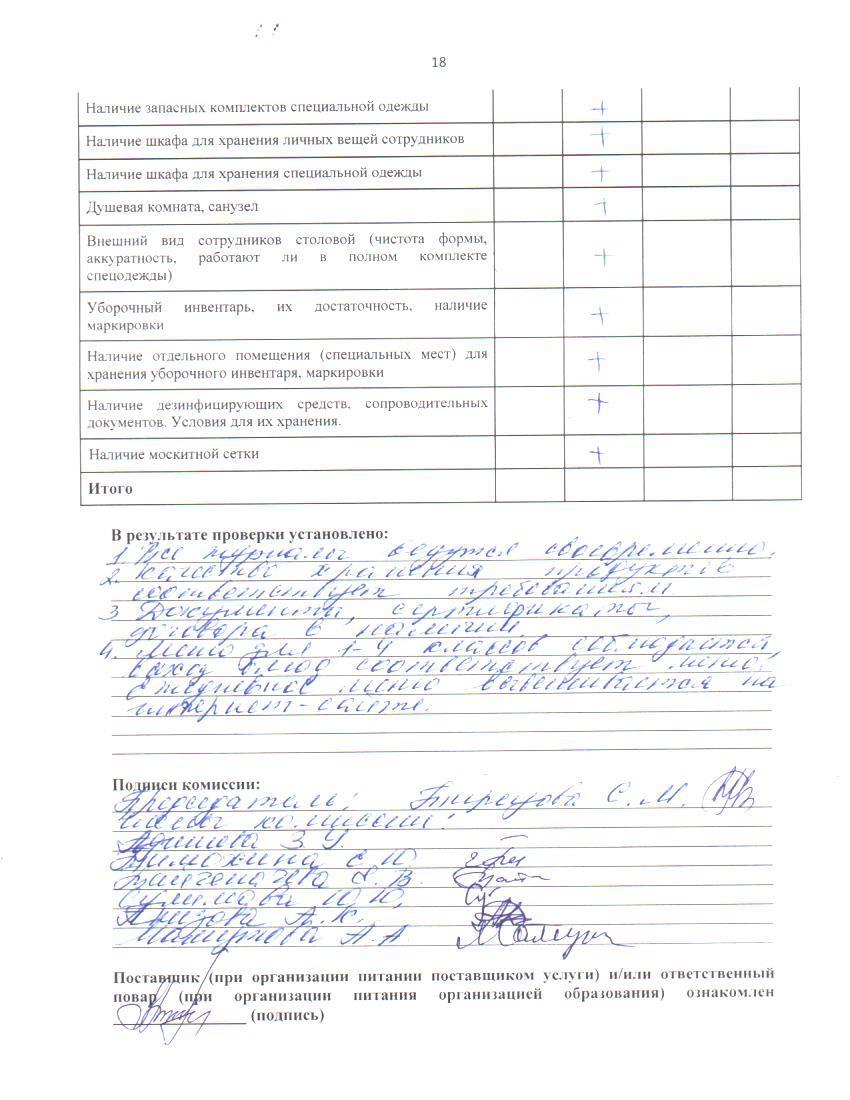 18
Наличие запасных комплектов специальной одежды +
Наличие шкафа для хранения личных вещей сотрудников +
Наличие шкафа для хранения специальной одежды +
Душевая комната, санузел +
Внешний вид сотрудников столовой (чистота формы,
аккуратность, работают ли в полном комплекте +
спецодежды)
Уборочный инвентарь, их достаточность, наличие +
маркировки
Наличие отдельного помещения (специальных мест) для +
хранения уборочного инвентаря, маркировки
Наличие дезинфицирующих средств, сопроводительных +
документов. Условия для их хранения.
Наличие москитной сетки +
Итого
В результате проверки установлено:
1. Все журналы ведутся своевременно.
2. Качество хранения продуктов
соответствует требованиям
3 Документы, сертификаты,
договора в наличии.
4. Меню для 1-4 классов соблюдается,
выход блюд соответствует меню,
ежедневное меню вывешивается на
интернет-сайте.
Подписи комиссии:
Председатель: С. М.
Члены комиссии:
З. У.
Тимохина С Ю
В.
Ю Ю.
А. К.
А. А.
Поставщик (при организации питании поставщиком услуги) и/или ответственный
повар (при организации питания организацией образования) ознакомлен
(подпись)